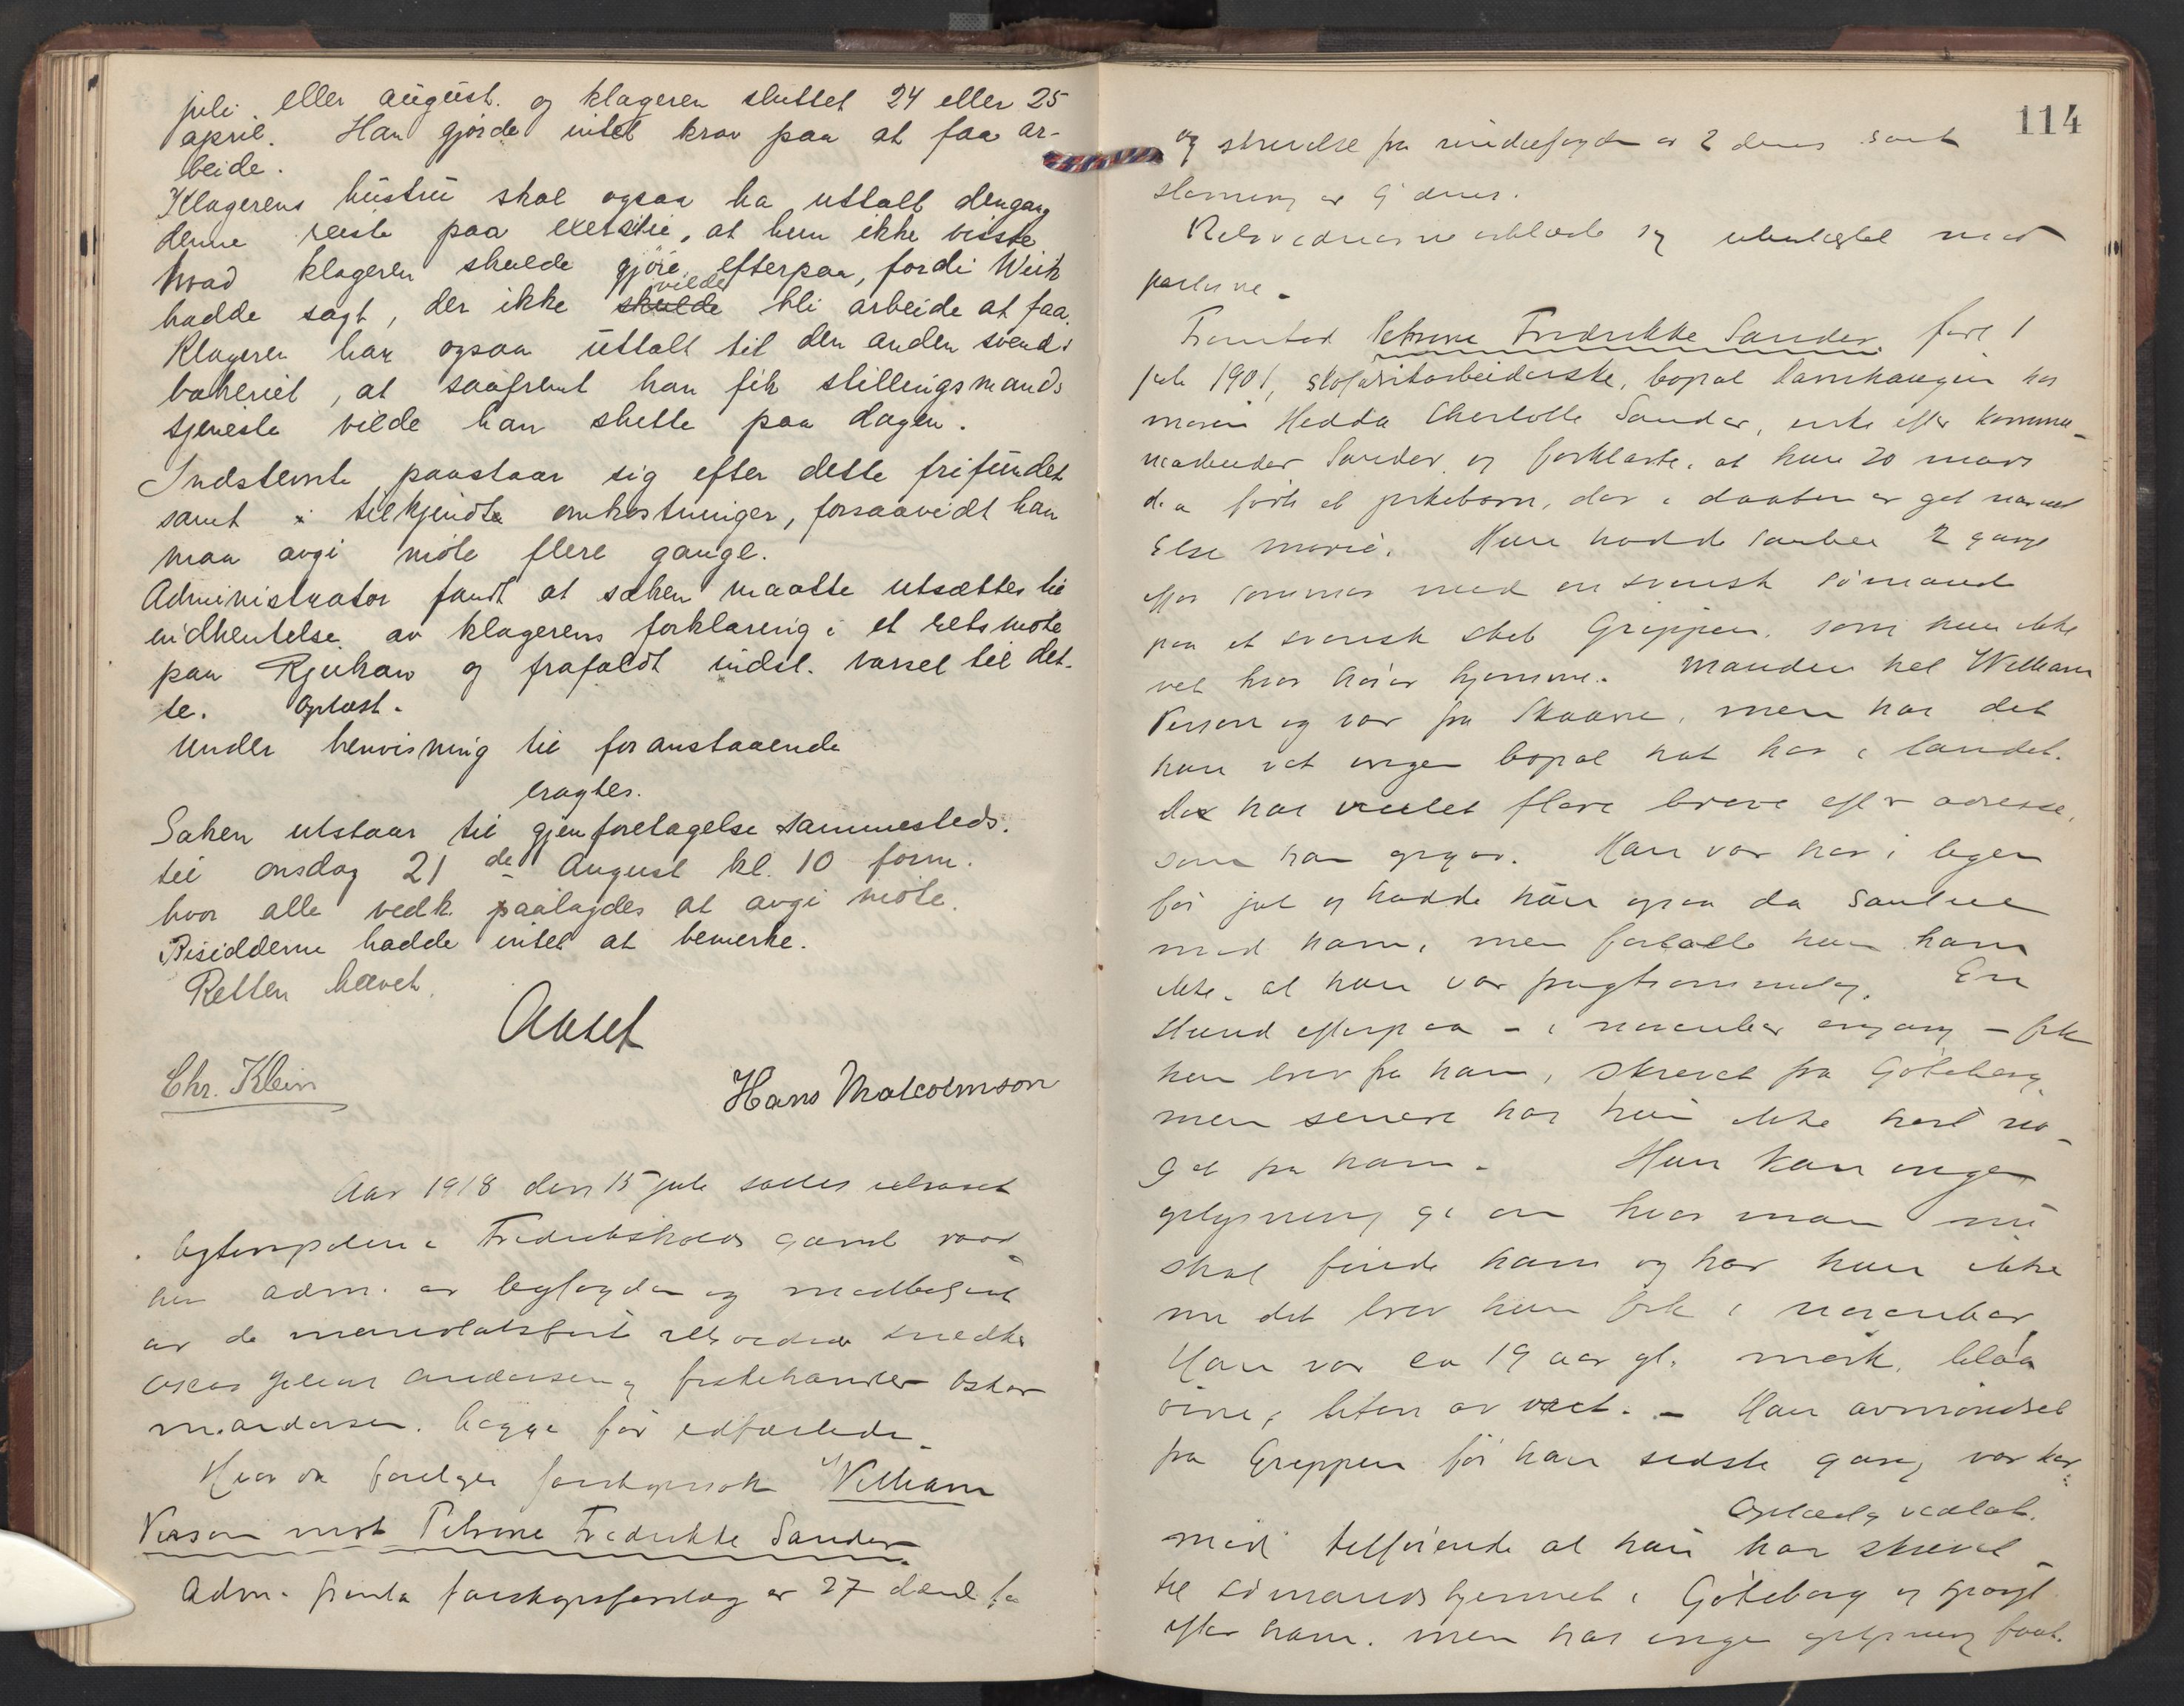 juli eller august. og klageren sluttet 24 eller 25
april. Han gjorde intet krav paa at faa ar-
beide.
Klagerens hustru skal ogsaa ha uttalt dengang
denne reiste paa exersitie, at hun ikke visste
hvad klageren skulde gjøre efterpaa, fordi Weik
hadde sagt, der ikke skulde vilde bli arbeide at faa.
Klageren har ogsaa uttalt til den anden svend i
bakeriet, at saafremt han fik stillingsmands
tjeneste vilde han slutte paa dagen.
Indstevnte paastaar sig efter dette frifundet
samt i tilkjendte omkostninger, forsaavidt han
maa avgi møte flere gange.
Administrator fandt at saken maatte utsættes til
indhentelse av klagerens forklaring i et retsmøte
paa Rjukan og frafaldt indst. varsel til det-
te. Oplæst.
Under henvisning til foranstaaende
eragtes.
Saken utstaar til gjenforetagelse sammesteds.
til onsdag 21 de August kl. 10 form.
hvor alle vedk. paalagdes at avgi møte.
Bisidderne hadde intet at bemerke.
Retten hævet.
Aaset
Chr. Klein
Hans Malcolmson
Aar 1918 den 15 juli sattes
i Fredrikshalds gamle raad
hus adm. av byfogden og medbetjent
av de retsvidner snedker
Oscar Andersen og fiskehandler Oskar
M. Andersen. begge før edfæstede.
Hvor da farskapssak William
Person mot Petrine Fredrikke Sander
Adm. farskapsforelæg av 27
114
og skrivelse fra av 2 dennes samt
stevning av 9 dennes.
Retsvidnerne erklærte sig ubeslægtet med
parterne.
Fremstod Petrine Fredrikke Sander, født 1
juli 1901, skofabrikarbeiderske, bopæl Damhaugen hos
moren Hedda Charlotte Sander, enke efter kommu-
nearbeider Sander og forklarte, at hun 20 mars
d. a. fødte et pikebarn, der i daaben er git navnet
Else Marie. Hun hadde samleie 2 gange
ifjor sommer med en svensk sømand
paa et svensk skib Grippen, som hun ikke
vet hvor hører hjemme. Manden het William
Person og var fra Skaane, men har det
hun vet ingen bopæl hat her i landet.
Der har vexlet flere breve efter adresse,
som han opgav. Han var her i byen
før jul og hadde hun ogsaa da samleie
med ham, men fortalte hun ham
ikke, at hun var frugtsommelig. En
stund efterpaa - i november engang - fik
hun brev fra ham, skrevet fra Göteborg,
men senere har hun ikke hørt no-
get fra ham. Hun kan ingen
oplysning gi om hvor man nu
skal finde ham og har hun ikke
nu det brev hun fik i november.
Han var ca 19 aar gl. mørk, blaa
øine, liten av vext. - Han avmønstret
fra Grippen før han sidste gang var her.
Oplæst og vedtat.
med tilføiende at hun har skrevet
til sømandshjemmet i Göteborg og spurgt
efter ham. men har ingen oplysning faat.